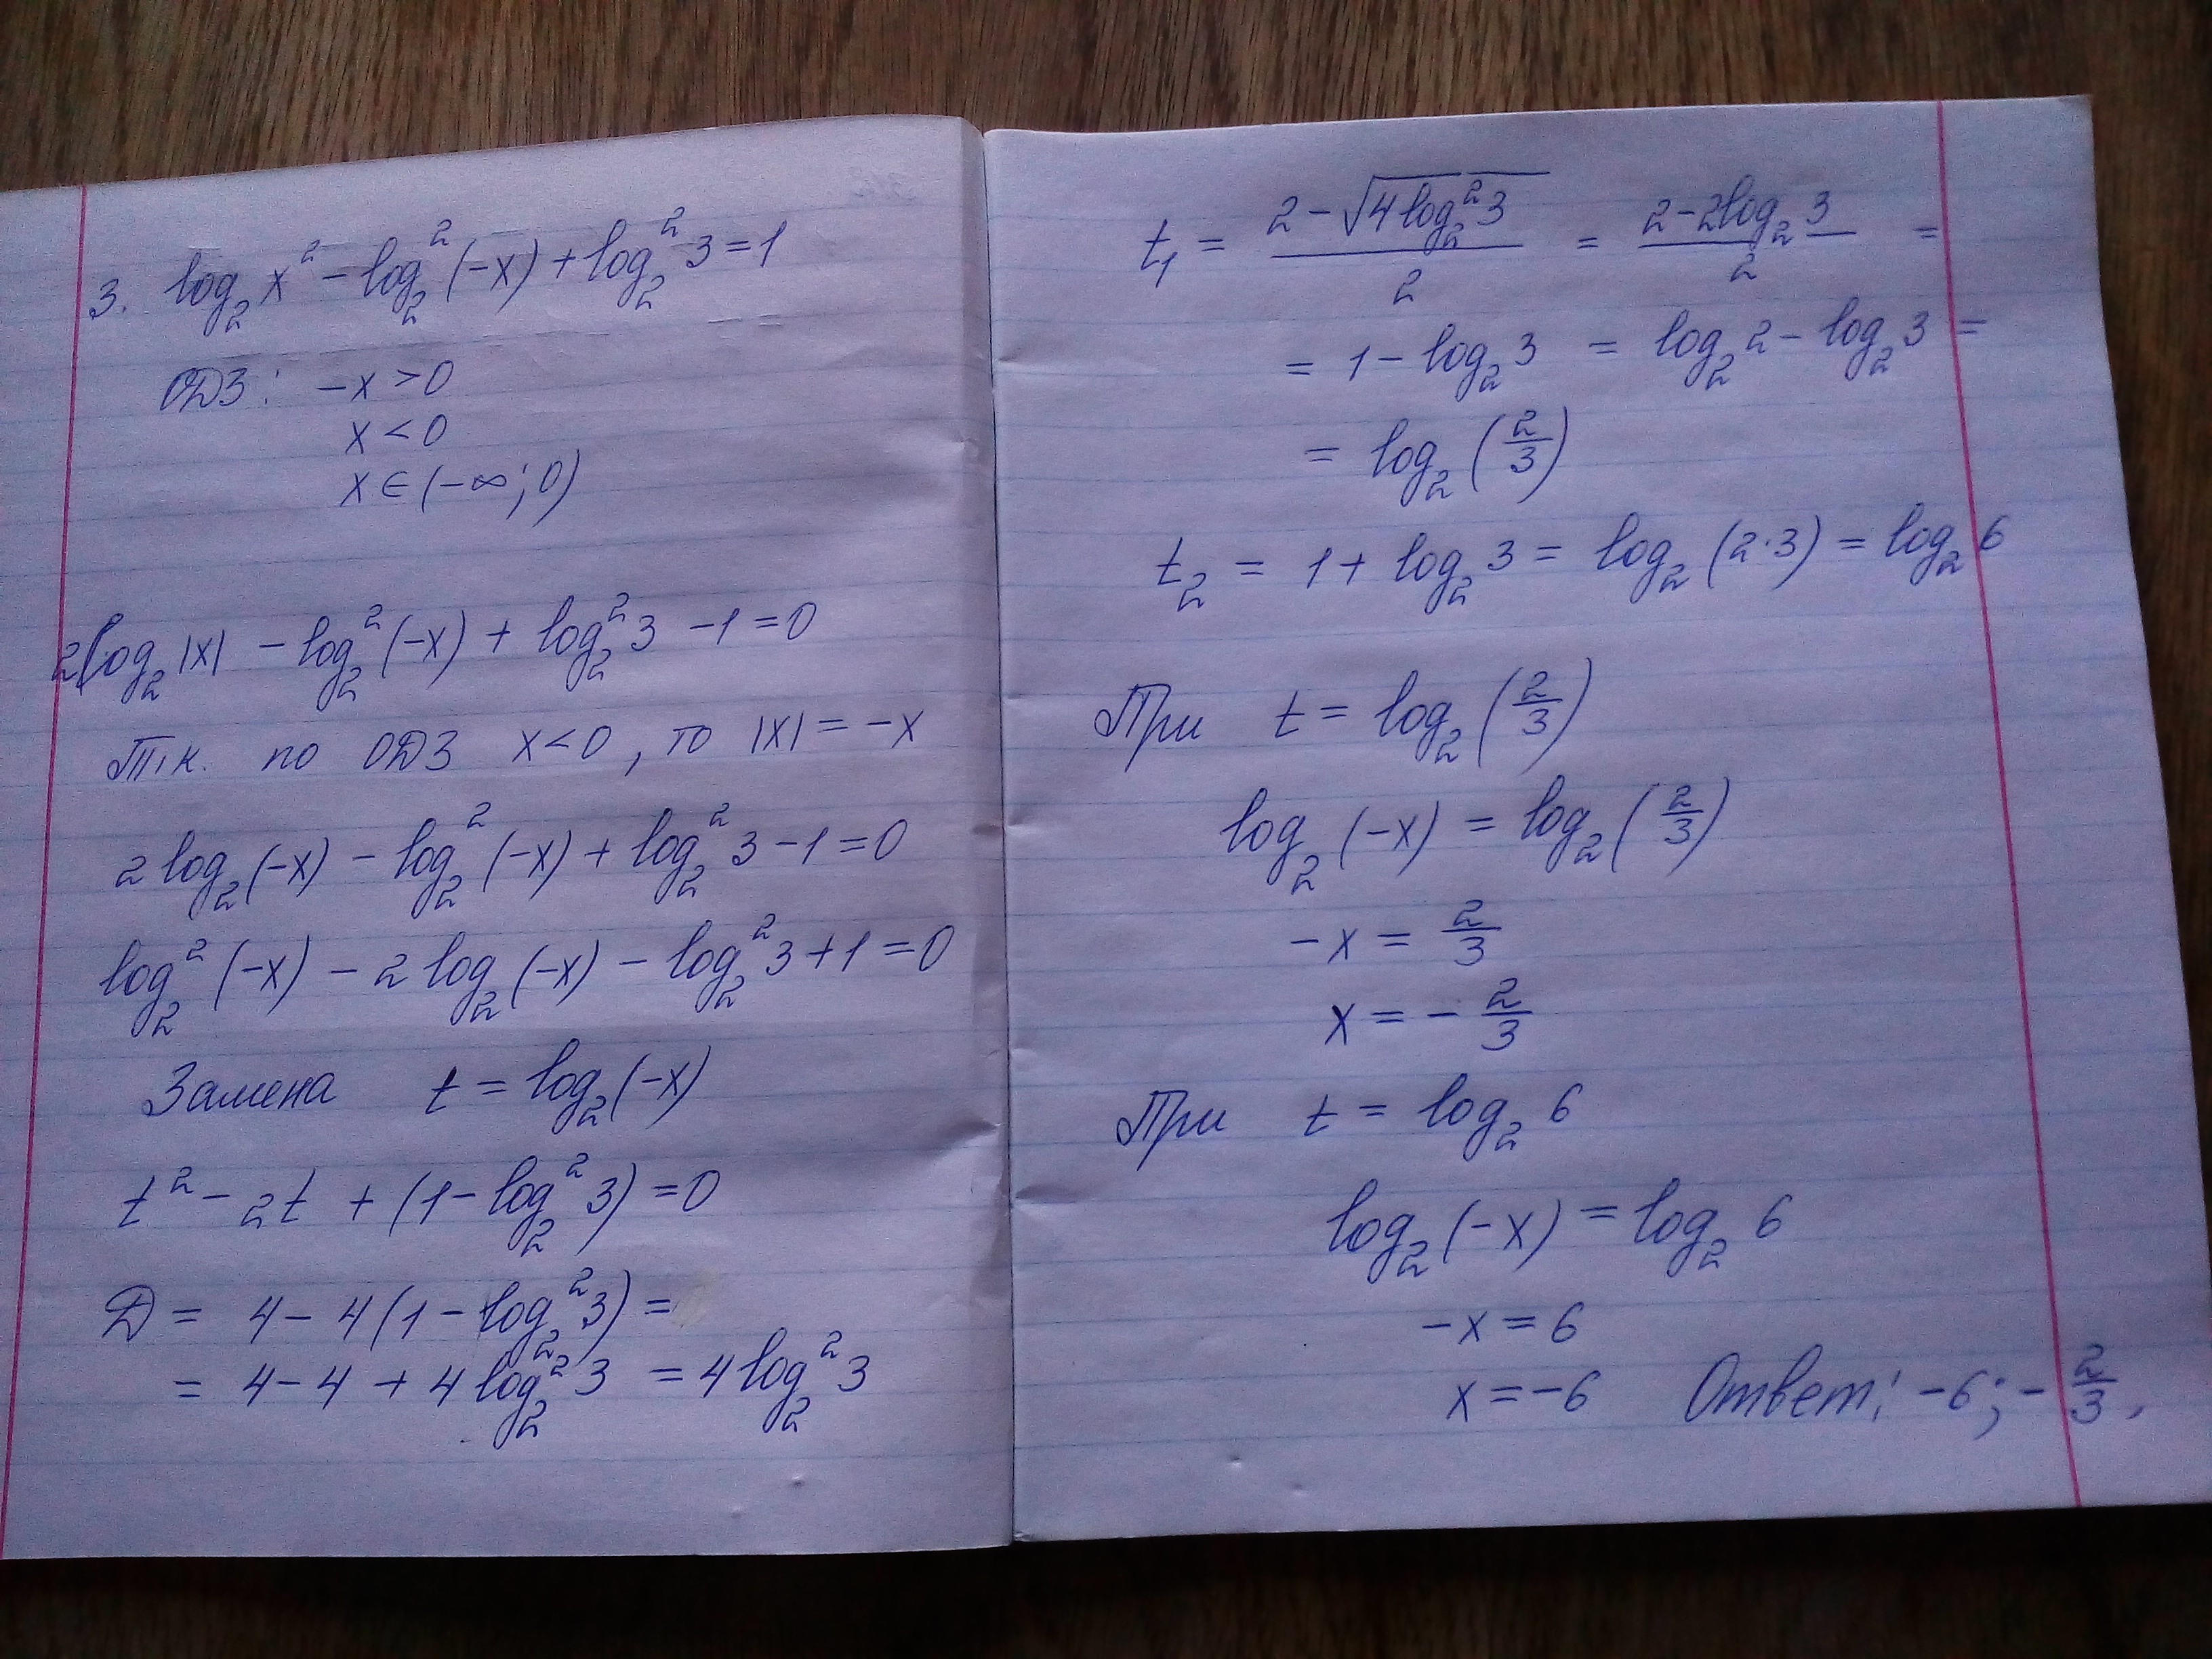 3. log₂ x² − log₂² (−x) + log₂² 3 = 1
ОДЗ: −x > 0
x < 0
x ∈ (−∞; 0)
2log₂ |x| − log₂² (−x) + log₂² 3 − 1 = 0
Т.к. по ОДЗ x < 0, то |x| = −x
2 log₂ (−x) − log₂² (−x) + log₂² 3 − 1 = 0
log₂² (−x) − 2 log₂ (−x) − log₂² 3 + 1 = 0
Замена t = log₂ (−x)
t² − 2t + (1 − log₂² 3) = 0
Д = 4 − 4 (1 − log₂² 3) =
= 4 − 4 + 4 log₂² 3 = 4 log₂² 3
t₁ = (2 − √(4 log₂² 3))/2 = (2 − 2log₂ 3)/2 =
= 1 − log₂ 3 = log₂ 2 − log₂ 3 =
= log₂ (2/3)
t₂ = 1 + log₂ 3 = log₂ (2·3) = log₂ 6
При t = log₂ (2/3)
log₂ (−x) = log₂ (2/3)
−x = 2/3
x = − 2/3
При t = log₂ 6
log₂ (−x) = log₂ 6
−x = 6
x = −6 Ответ: −6; − 2/3.